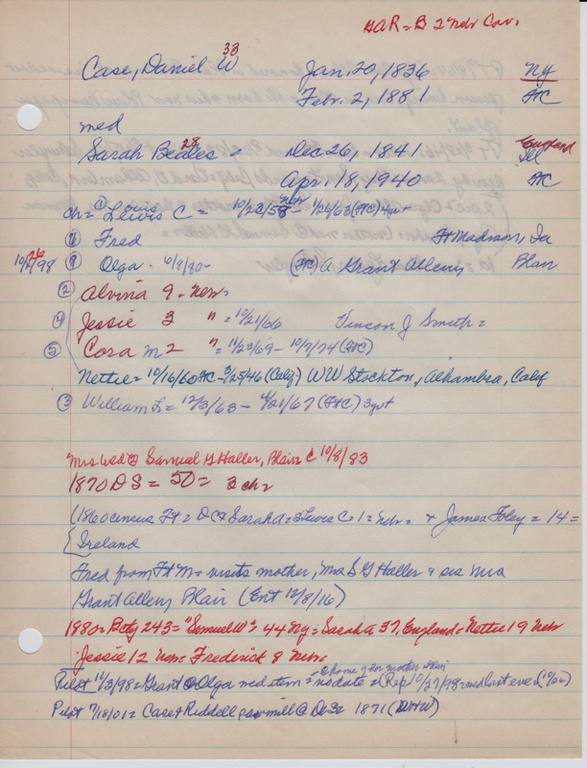 GAR = B 2 Nebr Cav.
33
Case, Daniel W Jan. 20, 1836 NY
Feb. 2, 1881 FtC
med
28 England
Sarah Beales = Dec 26, 1841 Ill
Apr. 18, 1940 FtC
Louis Nebr
ch = ① Lewis C = 10/23/58 - 1/26/63 (FtC) 4 yr
⑥ Fred Ft Madison, Ia
26
10/ /98 Olga - 6/9/80 - (FtC) A Grant Allen, Blair
② Alvina 9 - Nebr
④ Jessie 3 " = 10/21/66 Vinson J Smith =
⑤ Cora M 2 " = 11/23/69 - 10/9/74 (FtC)
Nettie = 10/16/60 FtC - 3/25/46 (Calif) WW Stockton, Alhambra, Calif
③ William L = 12/3/63 - 4/21/67 (FtC) 3 yr
Mrs wed Samuel G Haller, Blair C 10/8/83
1870 D S = 50 = 3 ch =
(1860 census Ft = D C & Sarah A = Lewis C = 1 = Nebr = + James Foley = 14 =
Ireland
Fred from Ft M = visits mother, Mrs S G Haller & sis Mrs
Grant Allen, Blair (Ent 12/8/16)
1880 = Pctg 243 = "Samuel W" = 44 NY = Sarah A 37, England = Nettie 19 Nebr
Jessie 12 Nebr = Frederick 8 Nebr =
@ home of her mother
Pilot 11/3/98 = Grant & Olga wed item = no date = (Rep 10/27/98 = wed last eve) (10/26)
Pilot 7/18/01 = Case & Riddell sawmill @ DeS = 1871 (WHW)